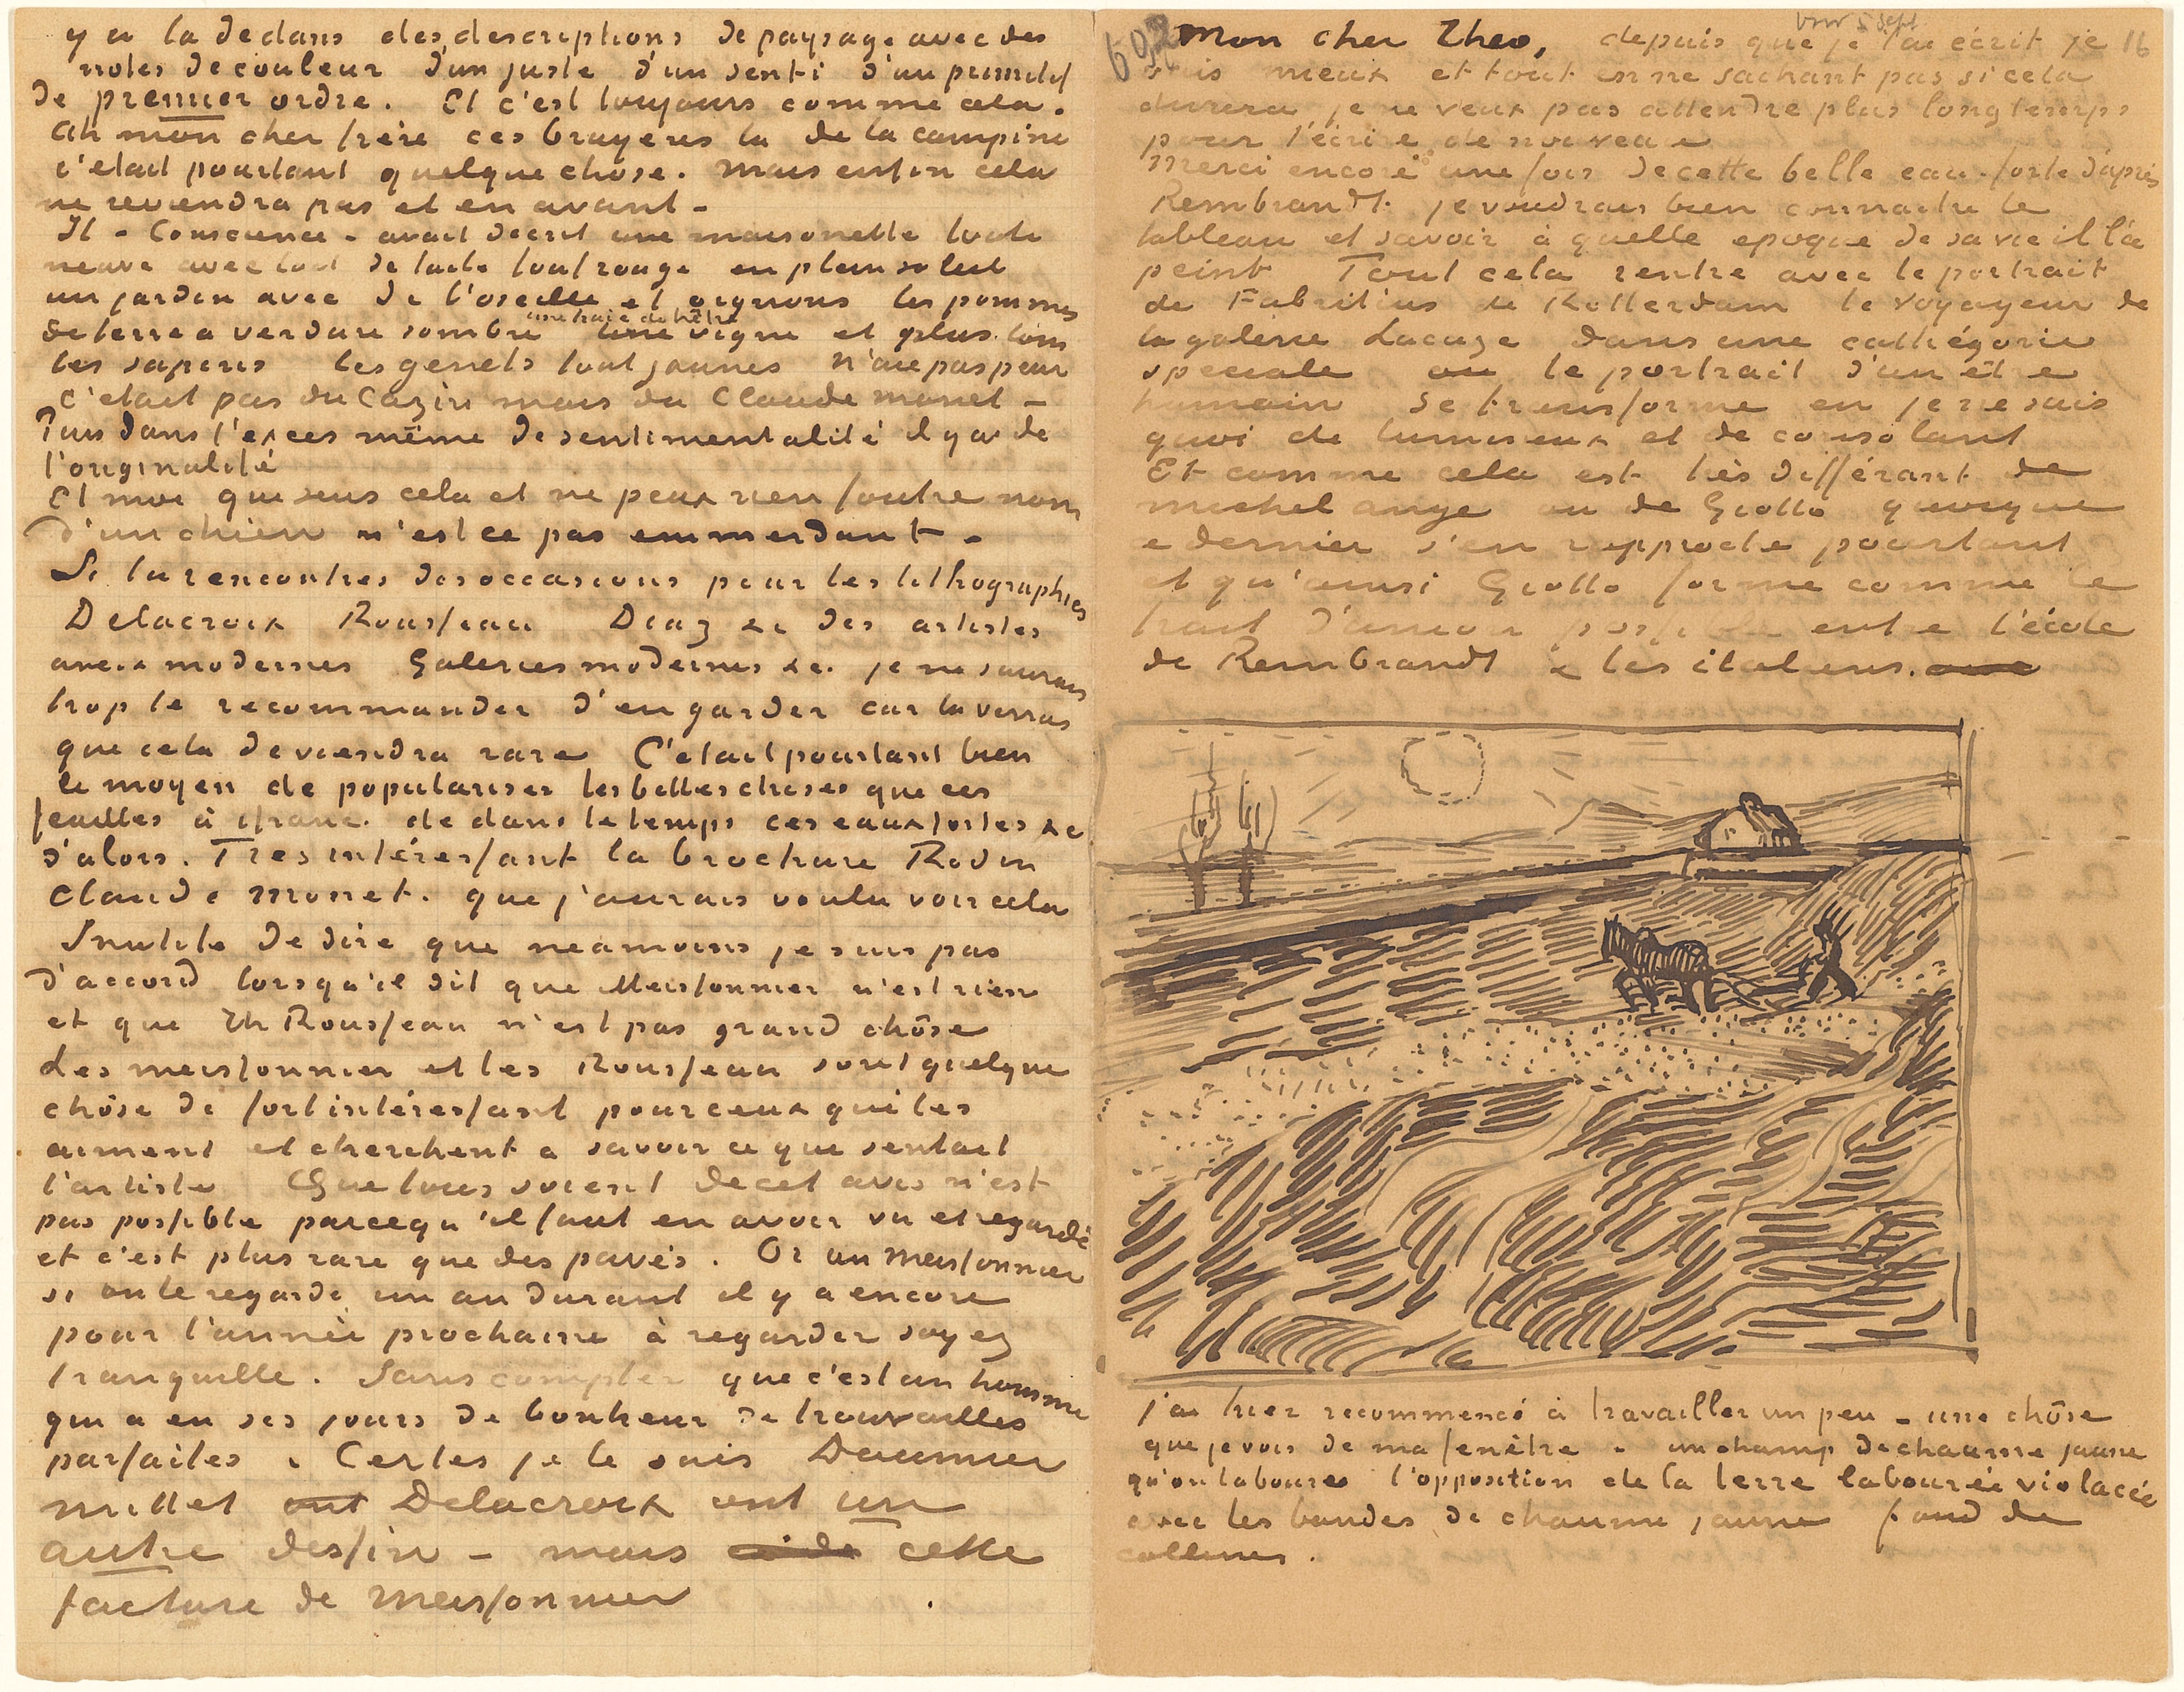 y a la dedans des descriptions de paysage avec des
notes de couleur d'un juste d'un senti d'un primitif
de premier ordre. Et c'est toujours comme cela.
Ah mon cher frère ces bruyeres là de la campine
c'etait pourtant quelque chose. Mais enfin cela
ne reviendra pas et en avant –
Il – Conscience – avait decrit une maisonette toute
neuve avec toit de tuile tout rouge en plein soleil
un jardin avec de l'oseille et oignons les pommes
une haie de hêtre
de terre a verdure sombre une vigne et plus loin
les sapins les genets tout jaunes N'aie pas peur
c'etait pas du Cazin mais du Claude Monet –
Puis dans l'exces même de sentimentalité il y a de
l'originalité
Et moi qui sens cela et ne peux rien foutre nom
d'un chien n'est ce pas emmerdant –
Si tu rencontres des occasions pour les lithographies
Delacroix Rousseau Diaz &c des artistes
anc. & modernes Galeries modernes &c. je ne saurais
trop te recommander d'en garder car tu verras
que cela deviendra rare C'etait pourtant bien
le moyen de populariser les belles choses que ces
feuilles à 1 franc. de dans le temps ces eaux fortes &c
d'alors. Très intéressant la brochure Rodin
Claude Monet. que j'aurais voulu voir cela
Inutile de dire que neamoins je suis pas
d'accord lorsqu'il dit que Meissonnier n'est rien
et que Th Rousseau n'est pas grand chôse
Les Meissonnier et les Rousseau sont quelque
chôse de fort intéressant pour ceux qui les
aiment et cherchent a savoir ce que sentait
l'artiste Que tous soient de cet avis n'est
pas possible parcequ'il faut en avoir vu et regardé
et c'est plus rare que des pavés. Or un Meissonnier
si on le regarde un an durant il y a encore
pour l'année prochaine à regarder soyez
tranquille. Sans compter que c'est un homme
qui a eu ses jours de bonheur de trouvailles
parfaites. Certes je le sais Daumier
Millet ont Delacroix ont un
autre dessin – mais cette
facture de Meissonnier
692 Mon cher Theo, depuis que je t'ai écrit je 16
suis mieux et tout en ne sachant pas si cela
durera je ne veux pas attendre plus longtemps
pour t'écrire de nouveau
Merci encore une fois de cette belle eau-forte d'après
Rembrandt. je voudrais bien connaitre le
tableau et savoir à quelle epoque de sa vie il l'a
peint Tout cela rentre avec le portrait
de Fabritius de Rotterdam le voyageur de
la galerie Lacaze dans une cathégorie
speciale ou le portrait d'un être
humain se transforme en je ne sais
quoi de lumineux et de consolant
Et comme cela est très différant de
Michel ange ou de Giotto quoique
ce dernier s'en rapproche pourtant
et qu'ainsi Giotto forme comme le
trait d'union possible entre l'école
de Rembrandt & les italiens.
j'ai hier recommencé à travailler un peu – une chôse
que je vois de ma fenêtre – un champ de chaume jaune
qu'on laboures l'opposition de la terre labourée violacée
avec les bandes de chaume jaune fond de
collines.